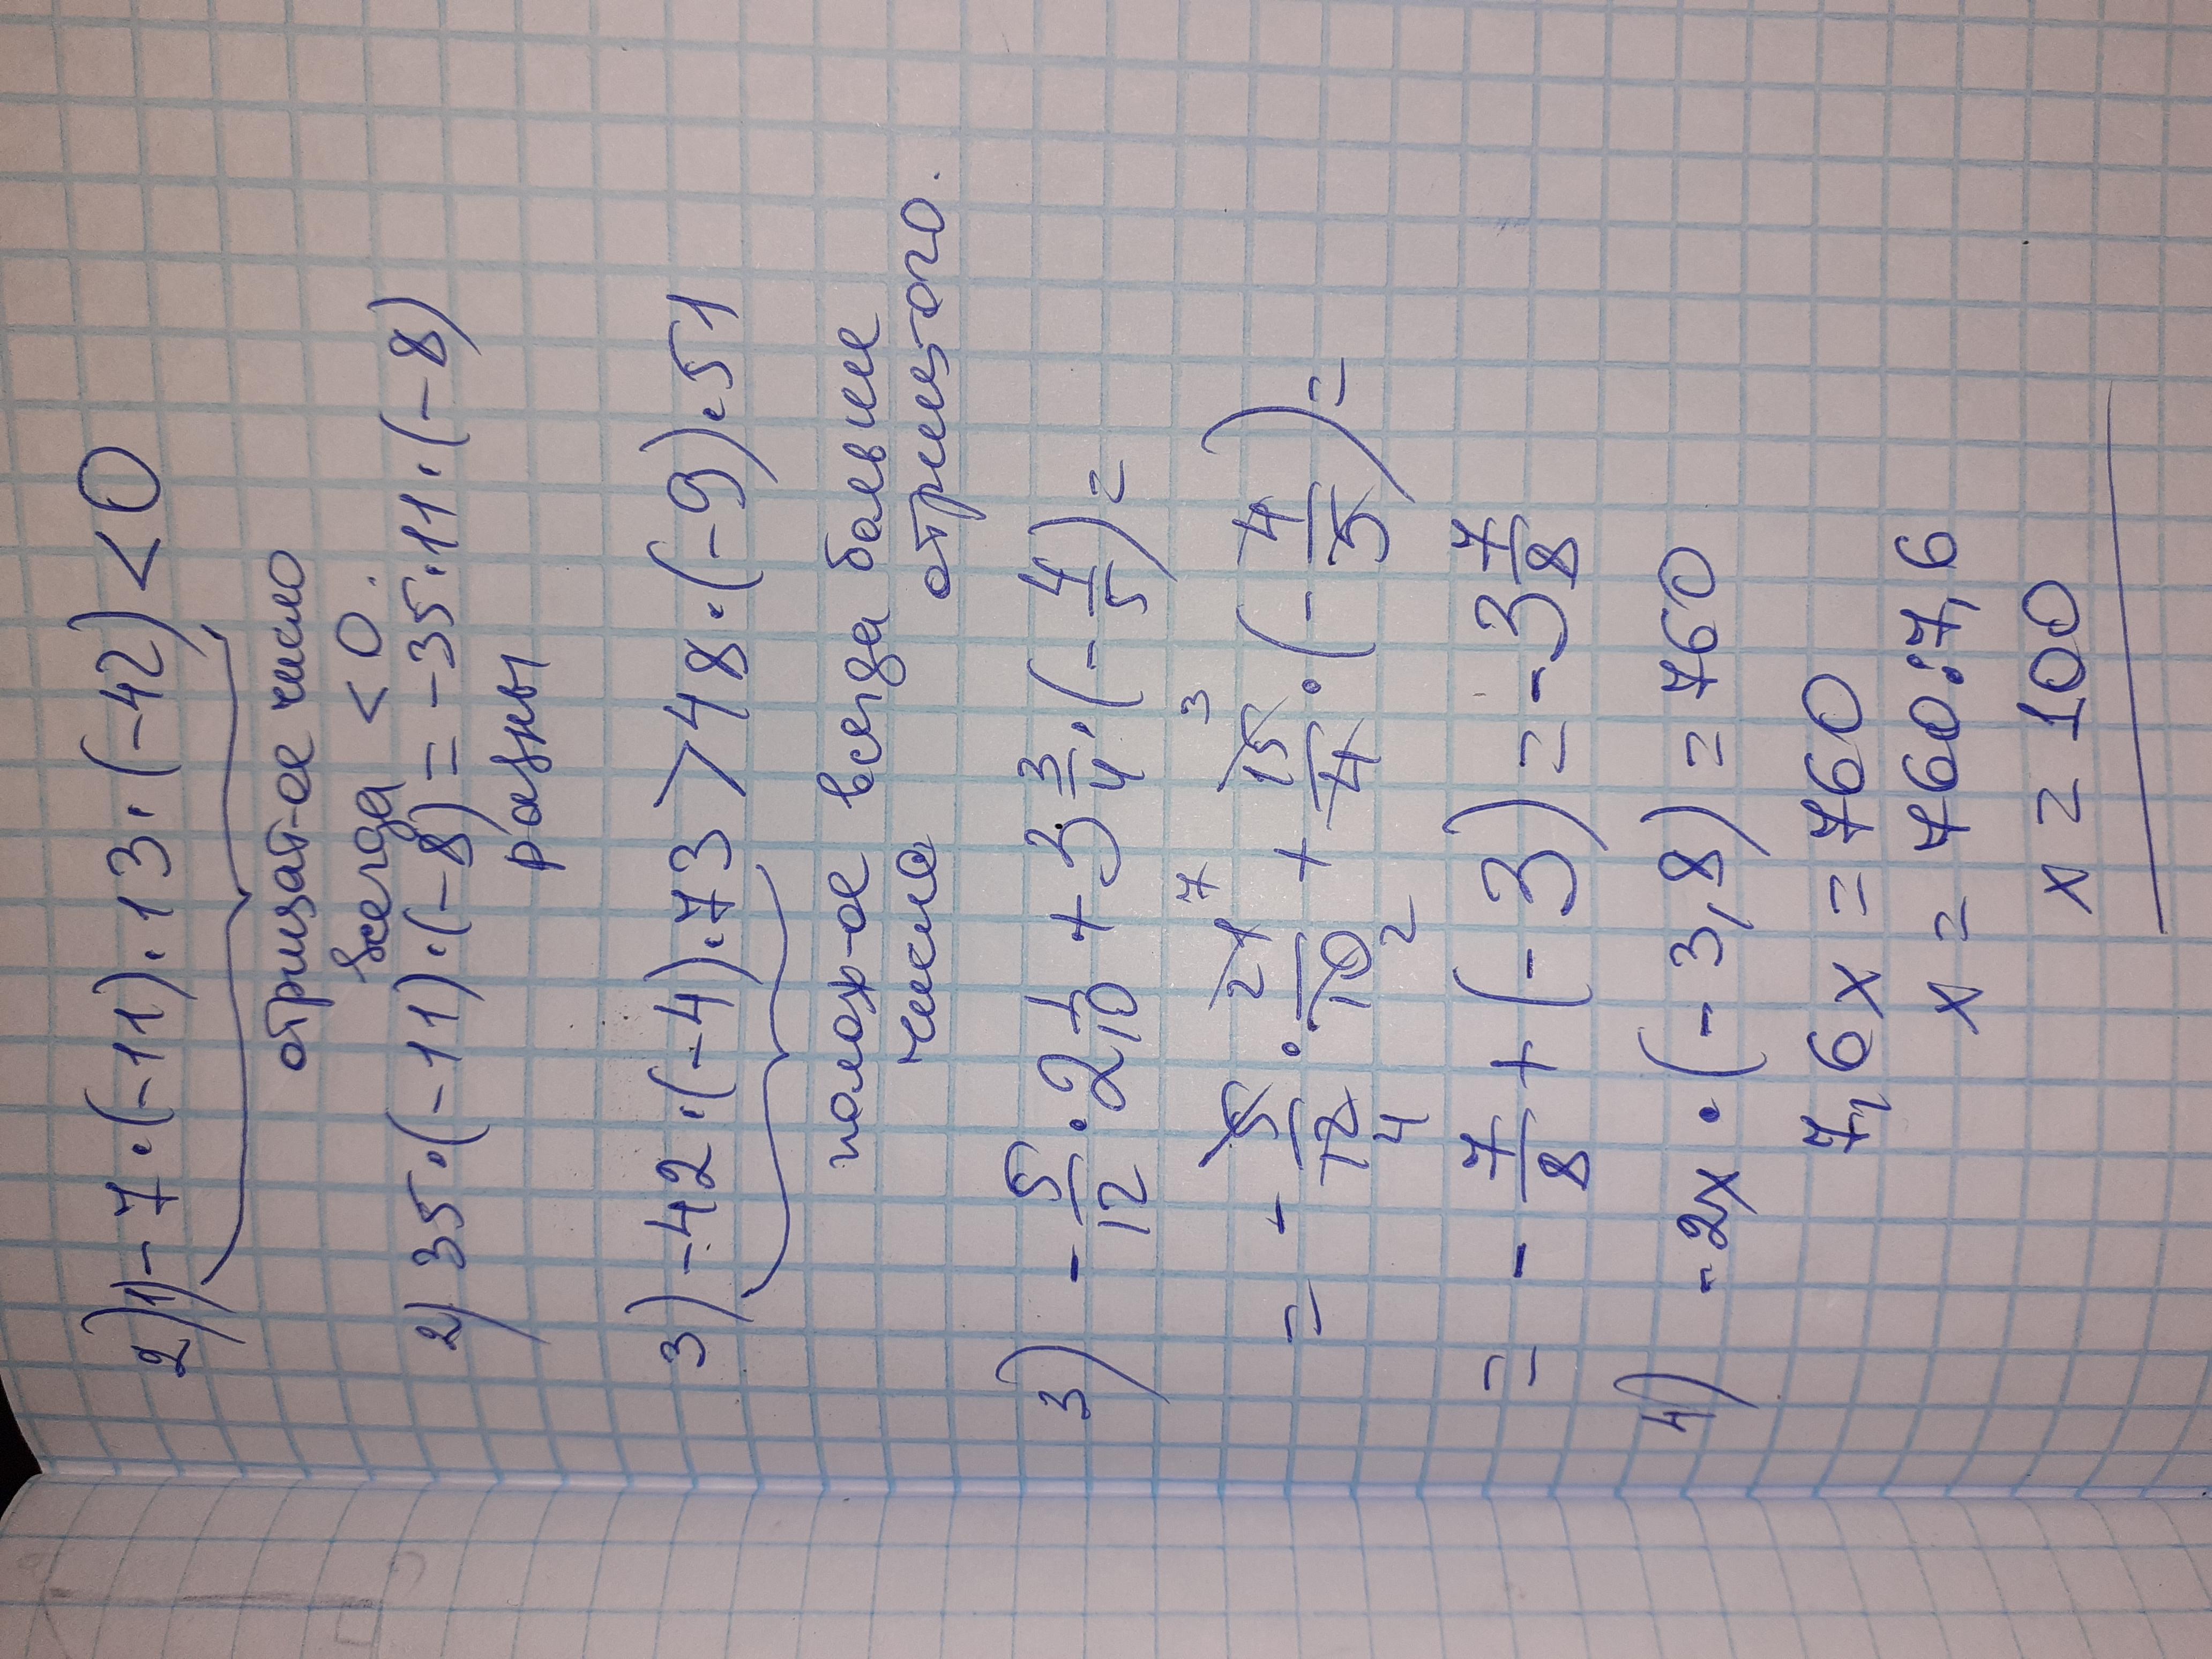 2) 1) - 7 · (-11) · 13 · (-42) < 0
отрицат-ое число
всегда < 0.
2) 35 · (-11) · (-8) = -35 · 11 · (-8)
равны
3) -42 · (-4) · 73 > 48 · (-9) · 51
полож-ое всегда больше
число отрицат-ого.
3) - 5/12 · 2 1/10 + 3 3/4 · (- 4/5) =
= - 5/12 · 21/10 + 15/4 · (- 4/5) =
7 3
4 2
= - 7/8 + (-3) = -3 7/8
4) -2x · (-3,8) = 760
7,6x = 760
x = 760 : 7,6
x = 100